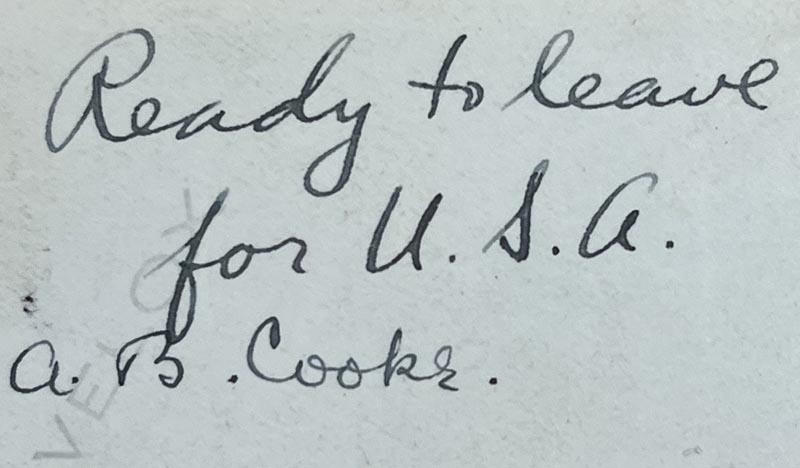 Ready to leave
for U.S.A.
A. B. Cooke.
VELOX